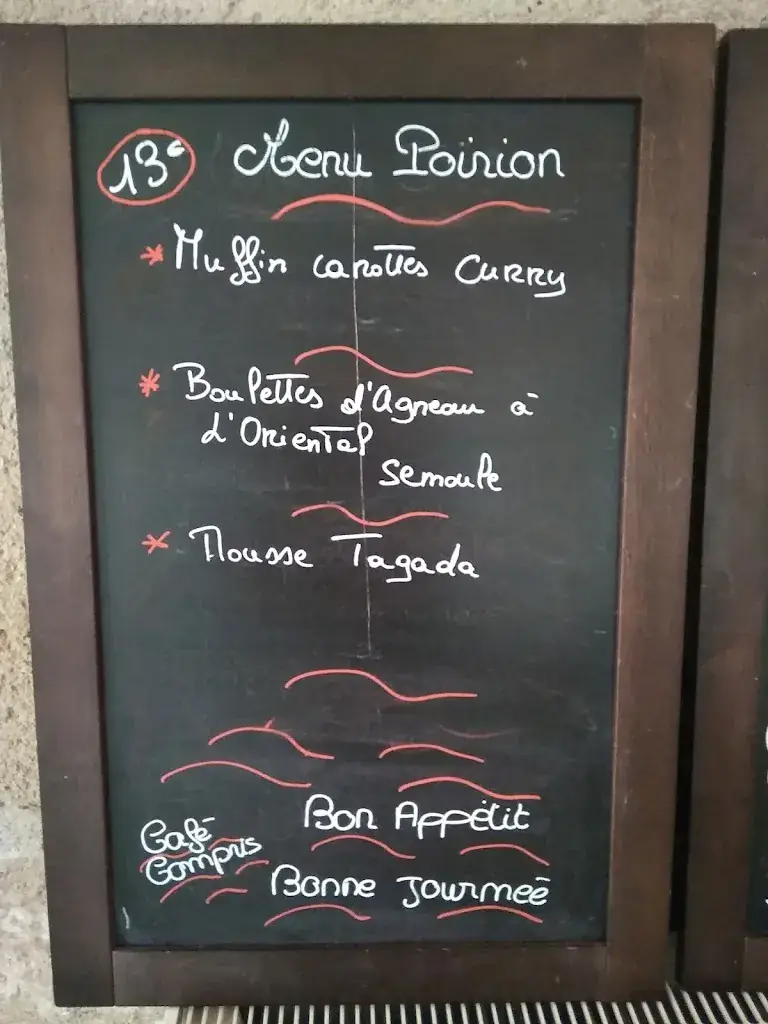 13€ Menu Poirion
* Muffin carottes curry
* Boulettes d'Agneau à
d'Oriental
semoule
* Mousse Tagada
Bon Appétit
Café
Compris
Bonne Journeé